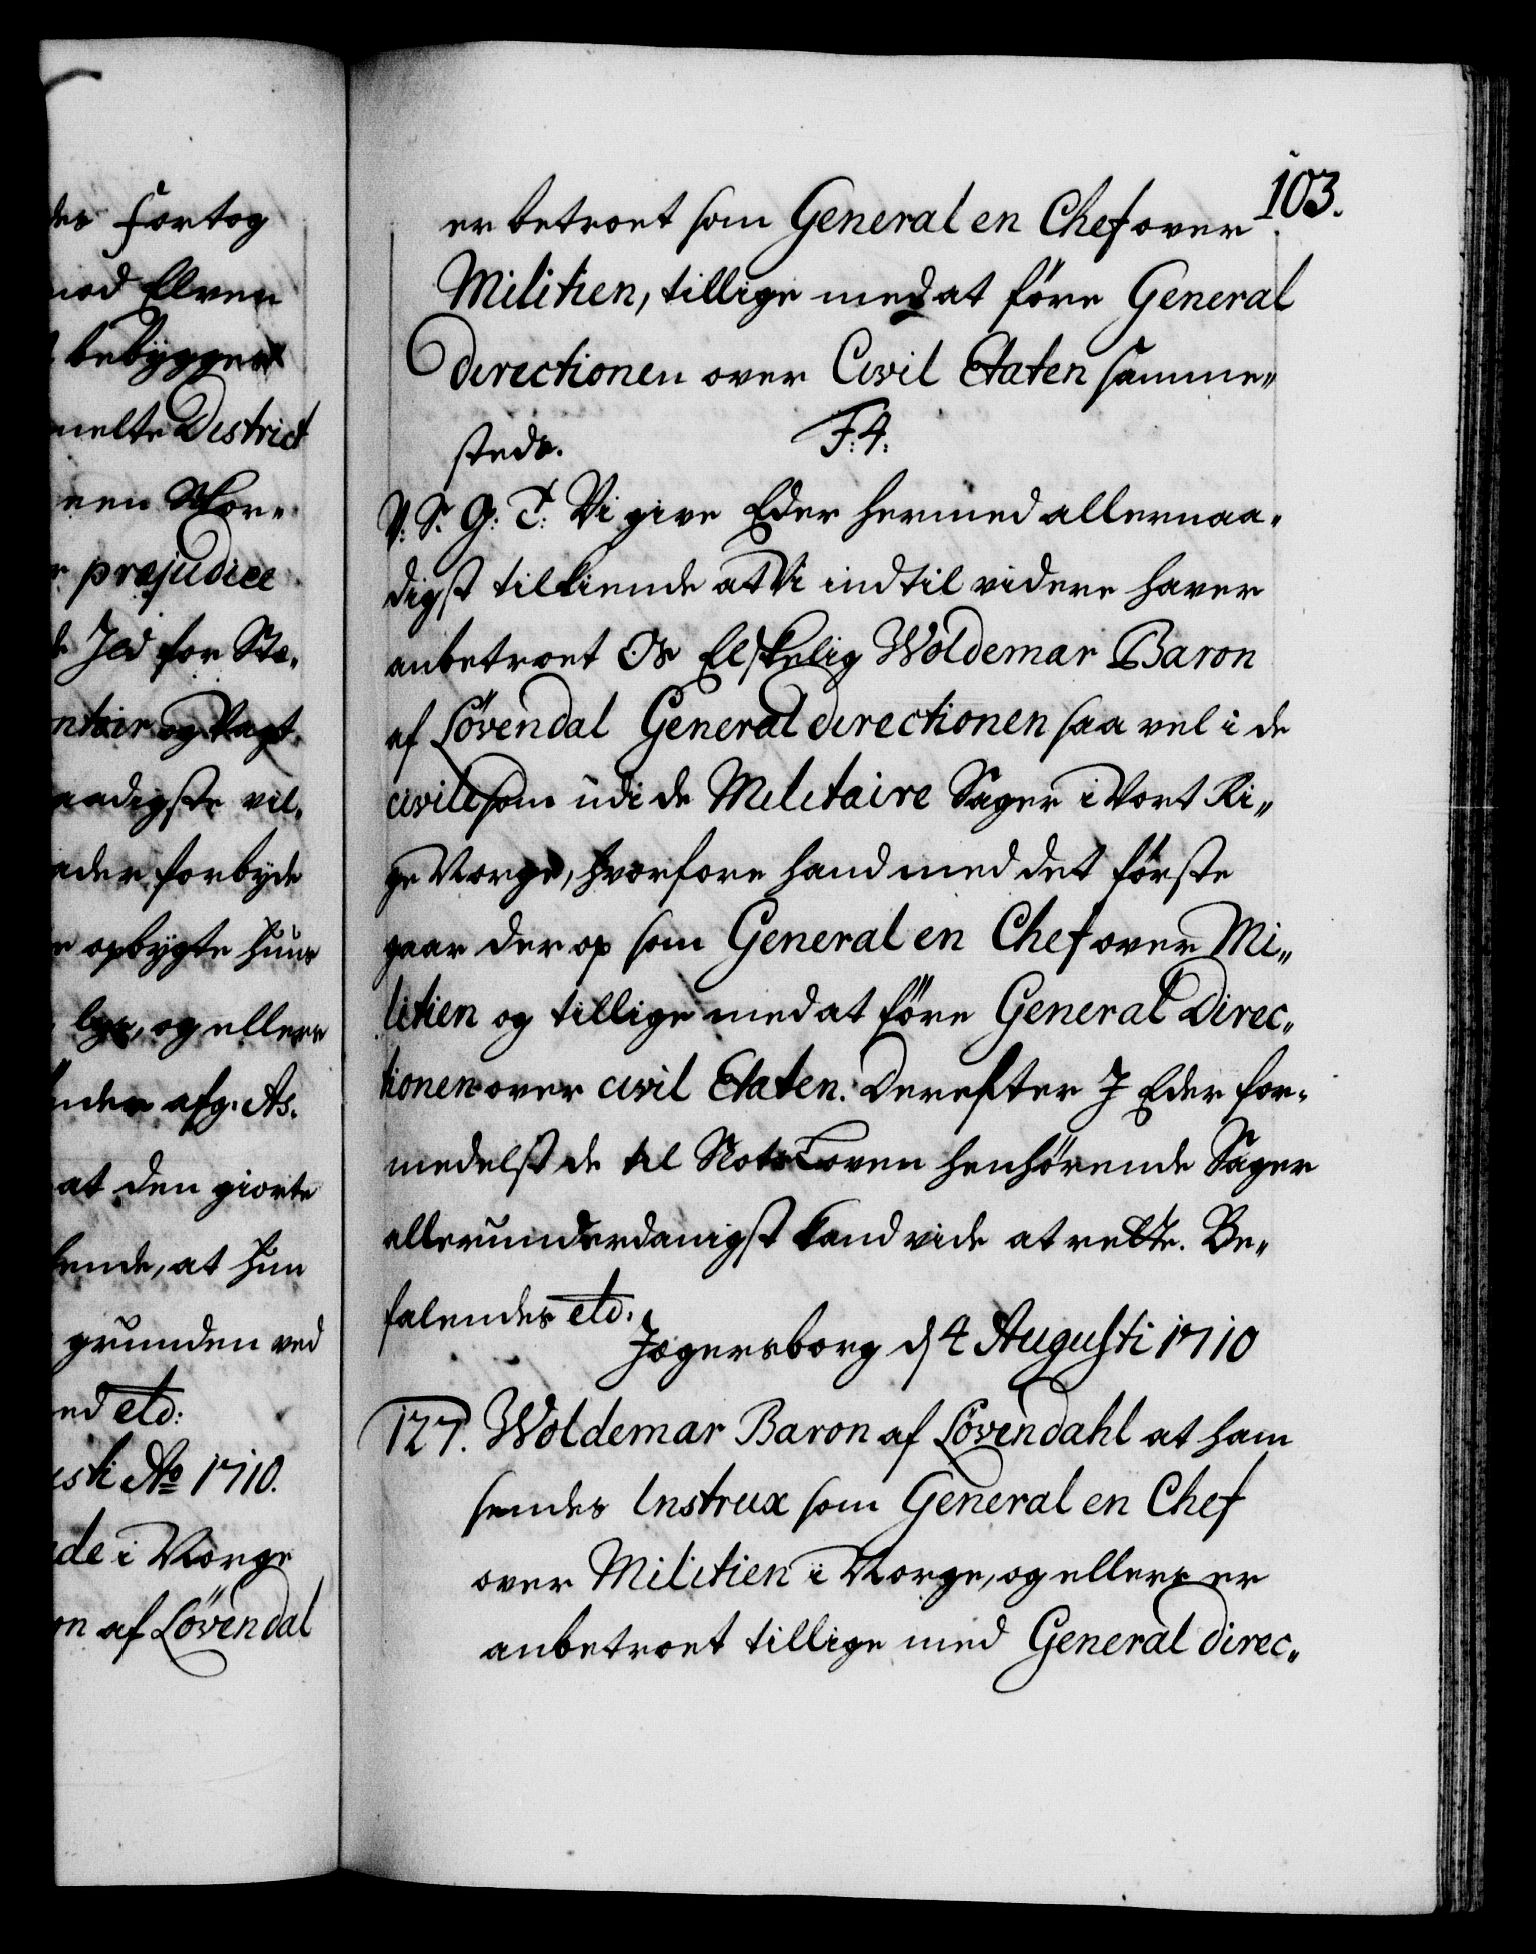 des Fortog
mod Elven
bebygger
melte District
præjudice
Ild for Ste„
og Vagt
aadigste vil„
forbyde
opbygte Huus
lys, og ellers
afg: As.
at den giorte
kiende, at hun
grunden ved
ed etc:
usti Ao 1710.
de i Norge
on af Lövendal
103.
er betroet som General en Chef over
Militien, tillige med at före General
Directionen over Civil Etaten samme„
steds. F: 4.
V: S: G: T: Vi give Eder hermed allernaa„
digst tilkiende at Vi indtil videre haver
anbetroet Os Elskelig Woldemar Baron
af Lövendal General directionen saa vel i de
civile som udi de Militaire Sager i Vort Ri„
ge Norge, hvorfore hand med det förste
gaar der op som General en Chef over Mi„
litien og tillige med at före General Direc„
tionen over civil Etaten. Derefter I Eder for„
medelst de til Slots Loven henhörende Sager
allerunderdanigst kand vide at rette. Be„
falendes etc:
Jægersborg d 4 Augusti 1710
127. Woldemar Baron af Lövendahl at ham
sendes Instrux som General en Chef
over Militien i Norge, og ellers er
anbetroet tillige med General direc„